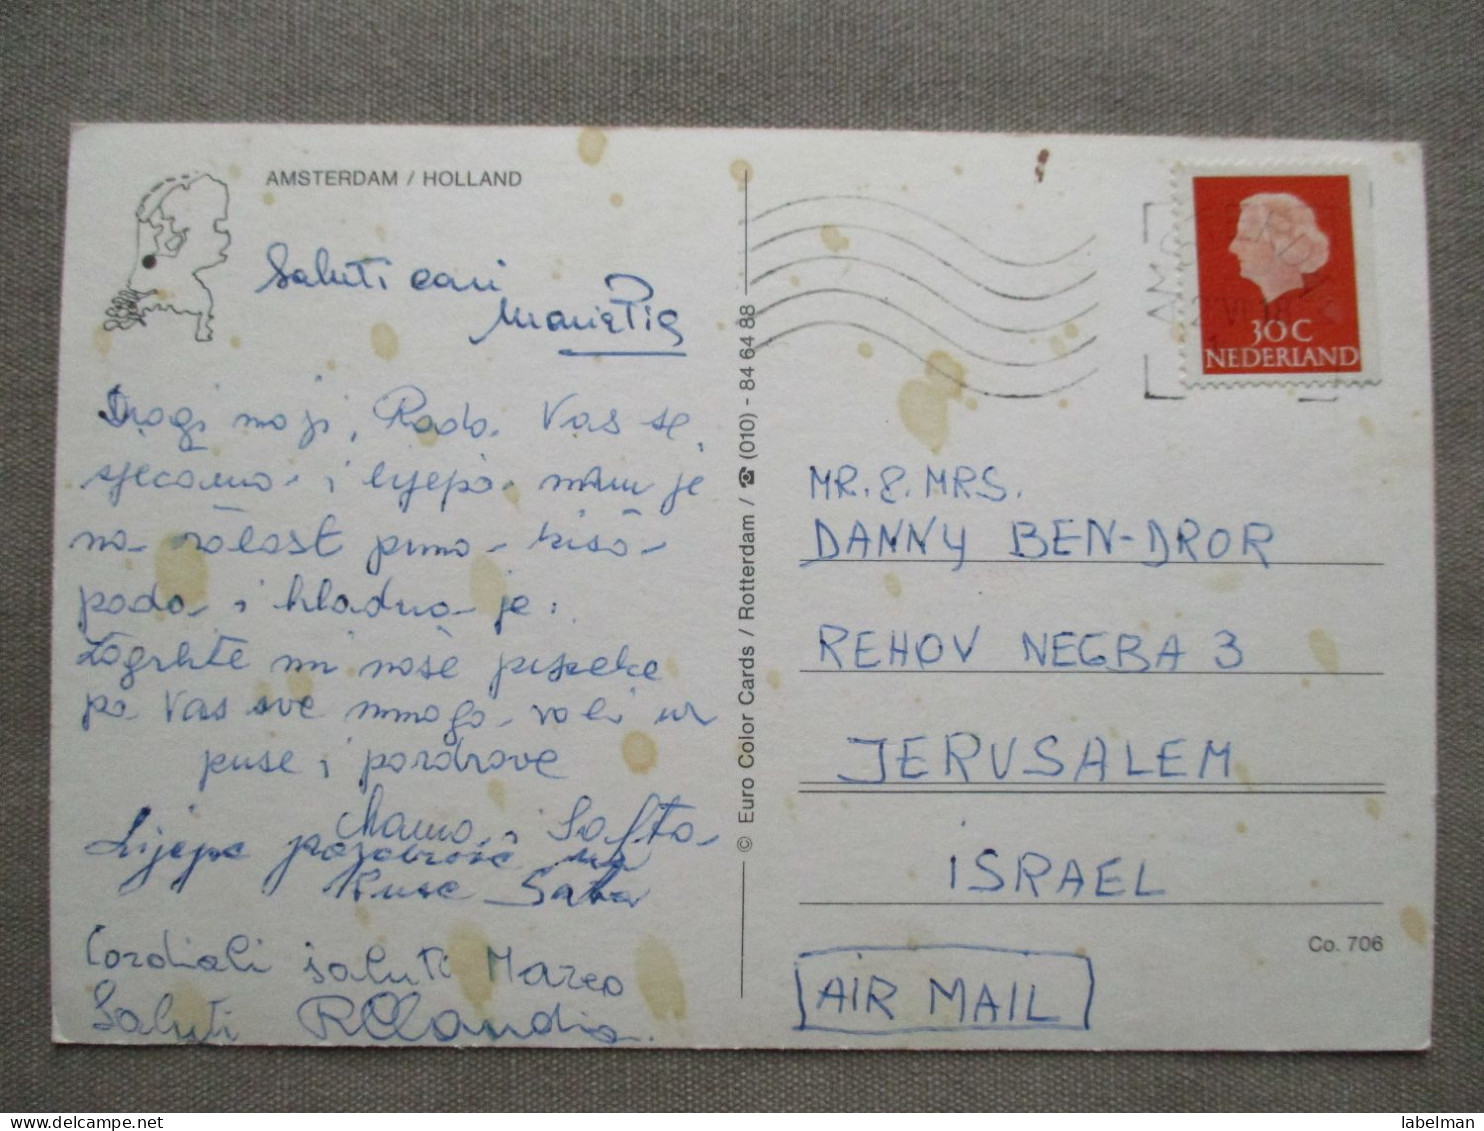 AMSTERDAM / HOLLAND
Saluti cari
Maria Pia
Dragi moji, Rado Vas se
sjecamo i lijepo nam je
na žalost puno kiše
pada i hladno je.
Zagrlite mi naše piseke
pa Vas sve mnogo voli uz
puse i pozdrove
Mama i Safta
Lijepe pozdrave
Puse Saba
Cordiali saluti Marco
Saluti
© Euro Color Cards / Rotterdam / ☎ (010) - 84 64 88
30C
NEDERLAND
MR. & MRS.
DANNY BEN-DROR
REHOV NEGBA 3
JERUSALEM
ISRAEL
Co. 706
AIR MAIL
delcampe.net
labelman